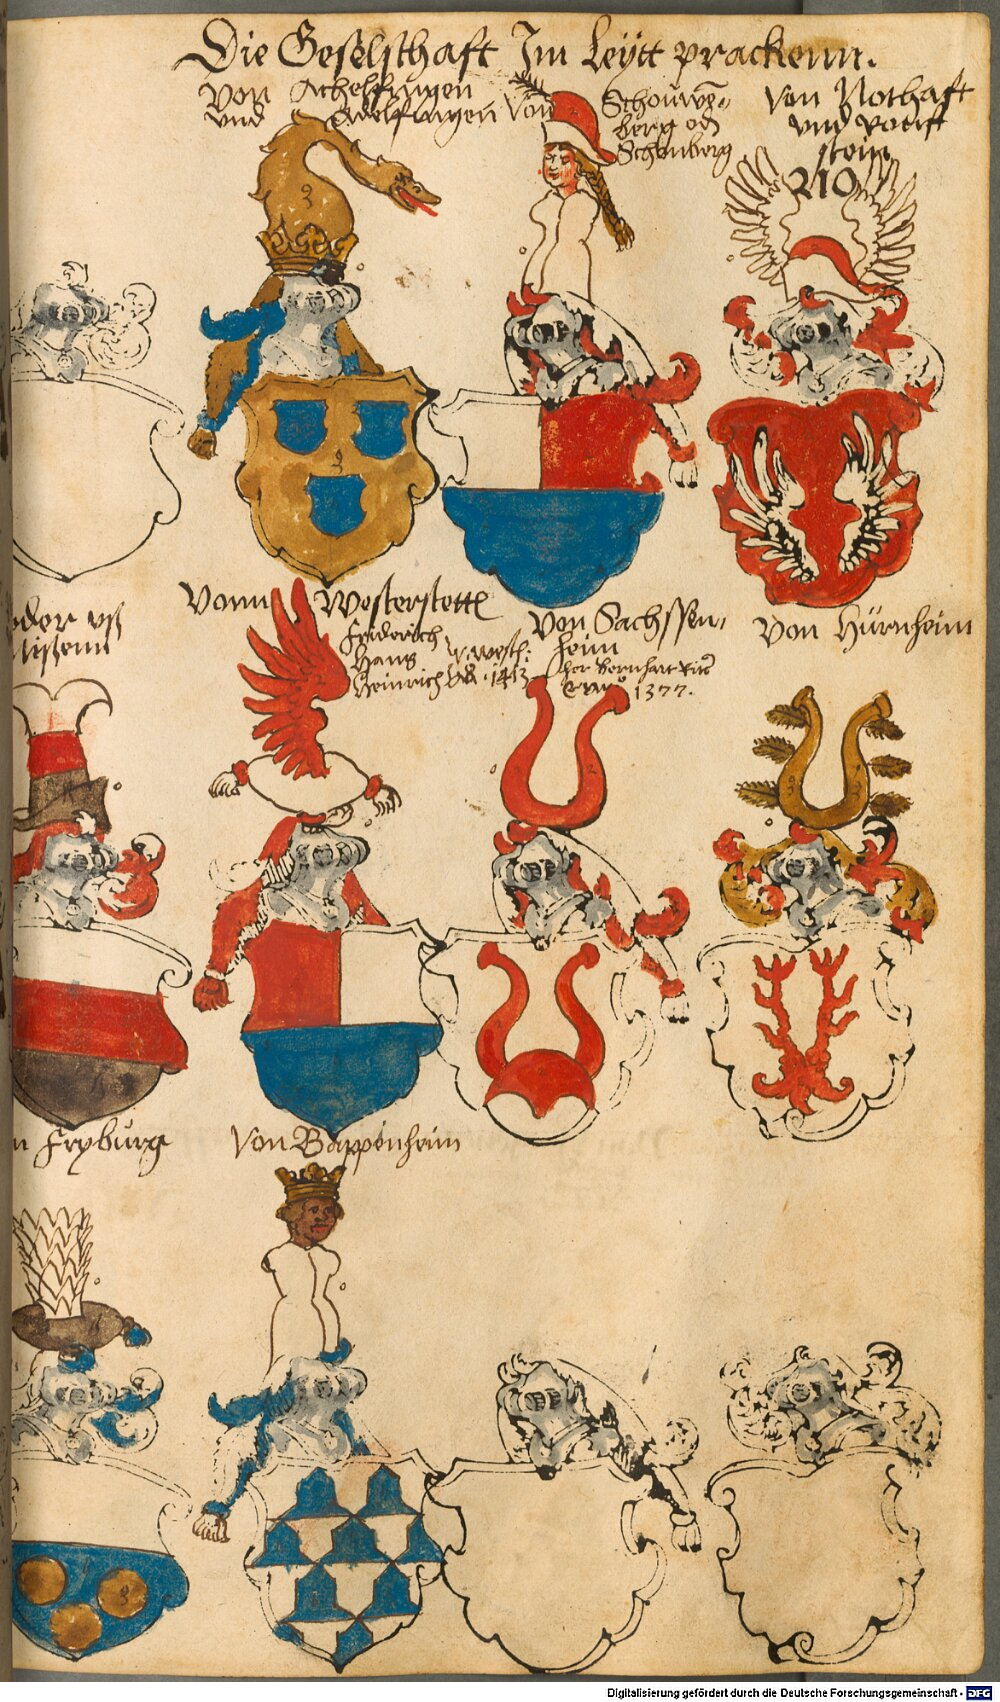 Die Geselschaft Im Leytt prackenn.
Von Achelfingen
und Adelfingen
Von Schouwe-
berg od
Schonberg
Von Nothaft
und
stein
210
Vonn Westerstette
Friderich
Hans
Heinrich 1413
Von Sachssen-
heim
her Bernhart Rit
1377.
Von Hürnheim
oder uß
Mißenn
n Fryburg
Von Bappenheim
Digitalisierung gefördert durch die Deutsche Forschungsgemeinschaft - DFG